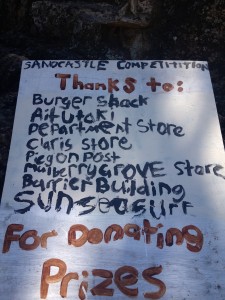 SANDCASTLE COMPETITITION
Thanks to:
Burger Shack
Aitutaki
Department Store
Claris Store
Pigeon Post
Mulberry GROVE Store
Barrier Building
SUNSEASURF
For Donating
Prizes